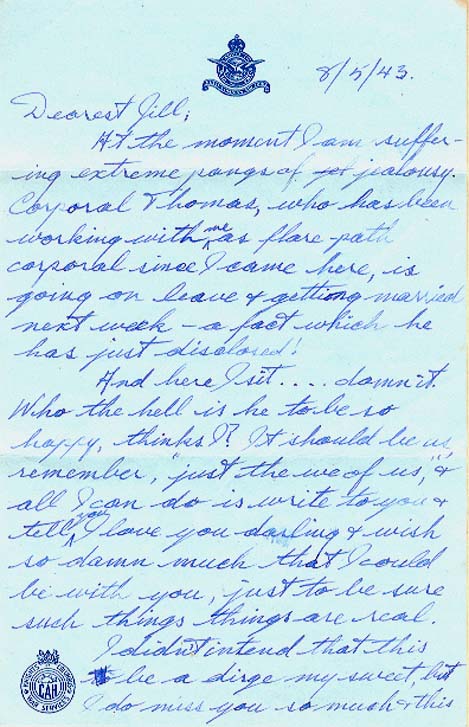 8/5/43.
Dearest Jill;
At the moment I am suffer-
ing extreme pangs of jealousy.
Corporal Thomas, who has been
working with me as flare path
corporal since I came here, is
going on leave & getting married
next week - a fact which he
has just disclosed!
And here I sit .... damn it.
Who the hell is he to be so
happy, thinks I? It should be us,
remember, "just the we of us," &
all I can do is write to you &
tell you I love you darling & wish
so damn much that I could
be with you, just to be sure
such things things are real.
I didn't intend that this
be a dirge my sweet, but
I do miss you so much & this
KNIGHTS OF COLUMBUS
CAH
WAR SERVICES